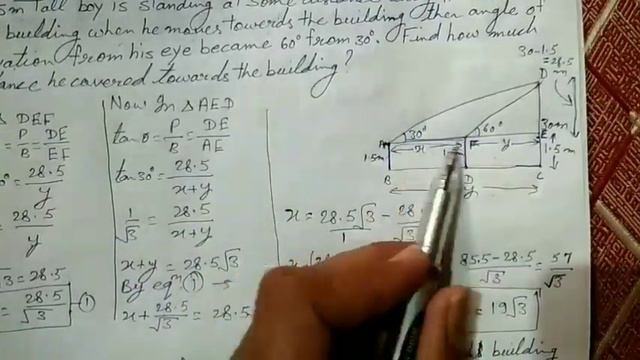 5m Tall boy is standing at some
building when he moves towards the building then angle of
ation from his eye became 60° from 30°. Find how much
ance he covered towards the building?
Δ DEF
= P/B = DE/EF
= 28.5/y
= 28.5/y
= 28.5
28.5/√3 ①
Now In Δ AED
tan θ = P/B = DE/AE
tan 30° = 28.5/x+y
1/√3 = 28.5/x+y
x+y = 28.5√3
By eqⁿ ①
x + 28.5/√3 = 28.5
30-1.5
= 28.5
D m
A 30° F 60° E 30m
1.5m x y 1.5m
B D C
y
x = 28.5√3/1 - 28
85.5-28.5/√3 = 57/√3
= 19√3
building